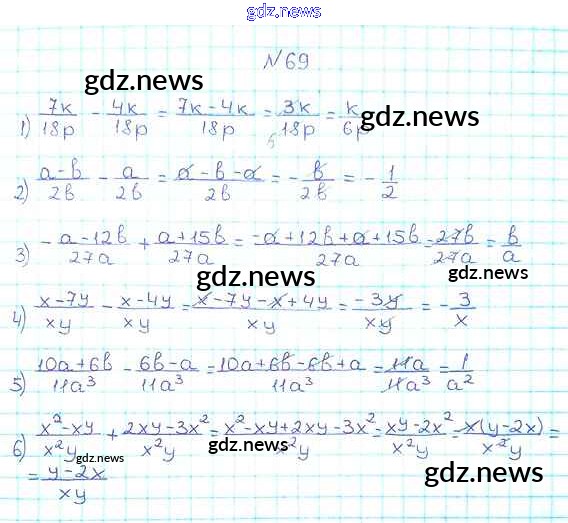 gdz.news
N 69
gdz.news
1) 7к/18р - 4к/18р = (7к - 4к)/18р = 3к/18р 6 = к/6р gdz.news
2) (a-b)/2b - a/2b = (a - b - a)/2b = - b/2b = - 1/2
3) - (a-12b)/27a + (a+15b)/27a = (-a+12b+a+15b)/27a = 27b/27a = b/a
gdz.news gdz.news
4) (x-7y)/xy - (x-4y)/xy = (x-7y-x+4y)/xy = -3y/xy = - 3/x
gdz.news
5) (10a+6b)/11a³ - (6b-a)/11a³ = (10a+6b-6b+a)/11a³ = 11a/11a³ = 1/a²
6) (x²-xy)/x²y + (2xy-3x²)/x²y = (x²-xy+2xy-3x²)/x²y = (xy-2x²)/x²y = x(y-2x)/x²y =
gdz.news gdz.news
= (y-2x)/xy gdz.news